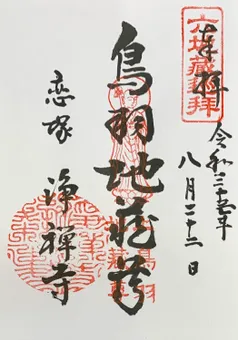 奉拝
令和三年
八月二十二日
鳥羽地蔵尊
恋塚
淨禅寺